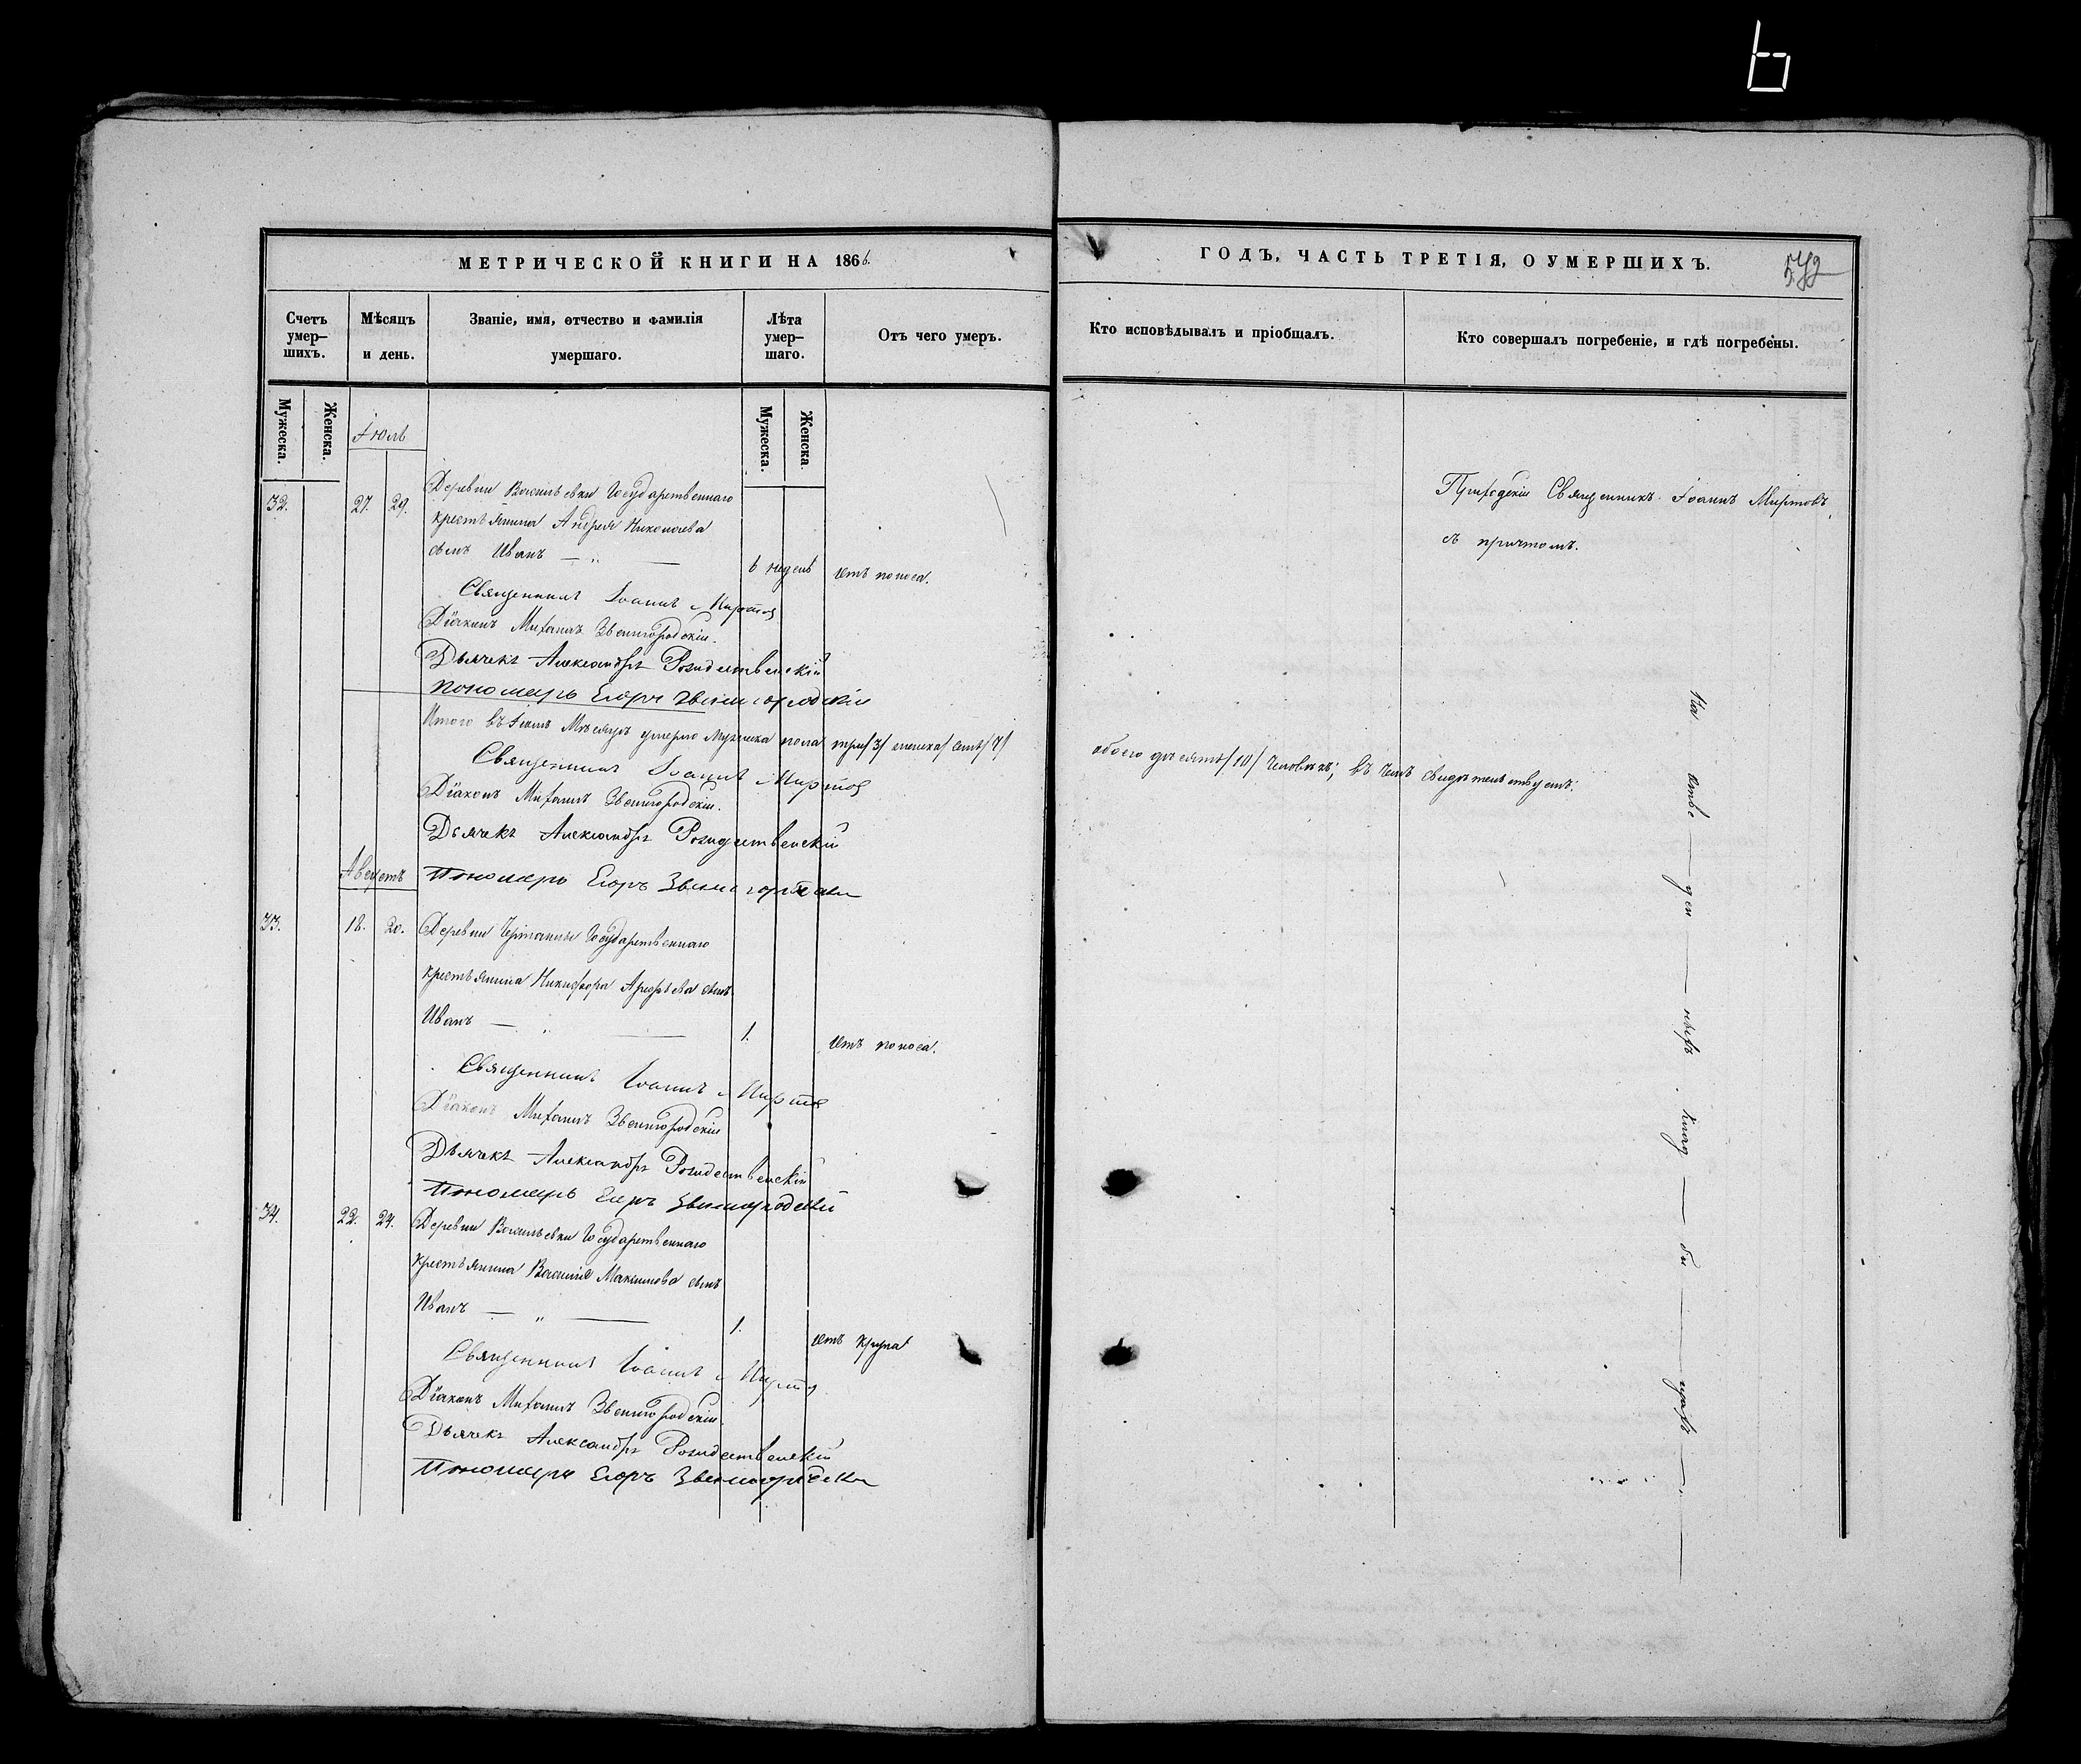 МЕТРИЧЕСКОЙ КНИГИ НА 1866.
Счетъ умер-
шихъ.
Мѣсяцъ
и день.
Званіе, имя, отчество и фамилія
умершаго.
Лѣта
умер-
шаго.
Отъ чего умеръ.
Мужеска.
Женска.
Іюль
Мужеска.
Женска
32.
27. 29.
Деревни Васильевки Государственнаго
крестьянина Андрея Николаева
сынъ Иванъ — „ —
6 недель
отъ поноса.
Священникъ Іоаннъ Миртовъ
Діаконъ Михаилъ Звенигородскій.
Дьячекъ Александръ Рождественскій
Пономарь Егоръ Звенигородскій
Итого въ Іюлѣ Мѣсяцѣ умерло Мужеска пола три /3/ женска семь /7/
Священникъ Іоаннъ Миртовъ
Діаконъ Михаилъ Звенигородскій.
Дьячекъ Александръ Рождественскій
Пономарь Егоръ Звенигородскій
Августъ
33.
18. 20.
Деревни Государственнаго
крестьянина Никифора Арефьева сынъ
Иванъ — „ —
1.
отъ поноса.
Священникъ Іоаннъ Миртовъ
Діаконъ Михаилъ Звенигородскій
Дьячекъ Александръ Рождественскій
Пономарь Егоръ Звенигородскій
34.
22. 24.
Деревни Васильевки Государственнаго
крестьянина Василія Максимова сынъ
Иванъ — „ —
1.
отъ крупа
Священникъ Іоаннъ Миртовъ
Діаконъ Михаилъ Звенигородскій.
Дьячекъ Александръ Рождественскій
Пономарь Егоръ Звенигородскій
ГОДЪ, ЧАСТЬ ТРЕТІЯ, О УМЕРШИХЪ.
Кто исповѣдывалъ и пріобщалъ.
Кто совершалъ погребеніе, и гдѣ погребены.
Приходскій Священникъ Іоаннъ Миртовъ
съ причтомъ.
обоего десять /10/ человѣкъ; въ чемъ свидѣтельствуемъ:
На